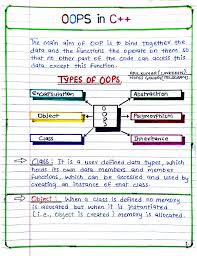 OOPS in C++
The main aim of OOP is to bind together the
data and the functions that operate on them so
that no other part of the code can access this
data except this function.
TYPES OF OOPS
Encapsulation
Abstraction
Object
Polymorphism
Class
Inheritance
Class : It is a user defined data types, which
holds its own data members and member
functions, which can be accessed and used by
creating an instance of that class.
Object : When a class is defined no memory
is allocated but when it is instantiated
(i.e., object is created) memory is allocated.